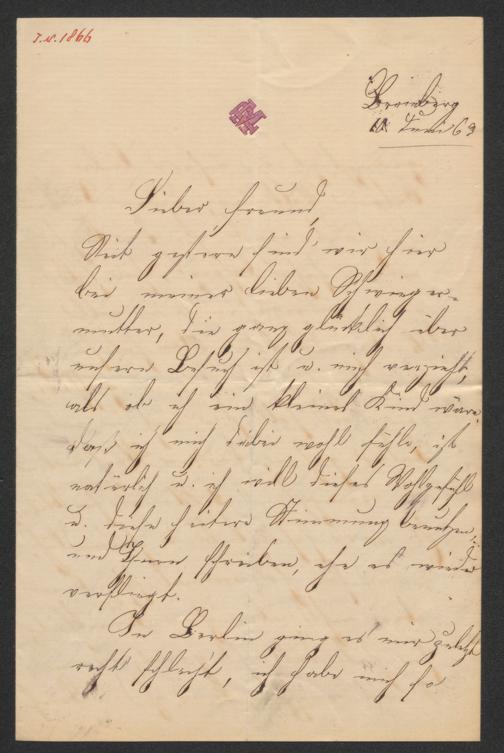 I.N. 1866
Bromberg
11 Juni 69
Lieber Freund,
Seit gestern sind wir hier
bei meiner lieben Schwieger-
mutter, die ganz glücklich über
unsern Besuch ist u. mich verzieht,
als ob ich ein kleines Kind wäre.
daß ich mich dabei wohl fühle, ist
natürlich u. ich will dieses Wohlgefühl
u. diese heitere Stimmung benutzen
und Ihnen schreiben, ehe es wieder
verfliegt.
In Berlin ging es mir zuletzt
recht schlecht, ich habe mich so